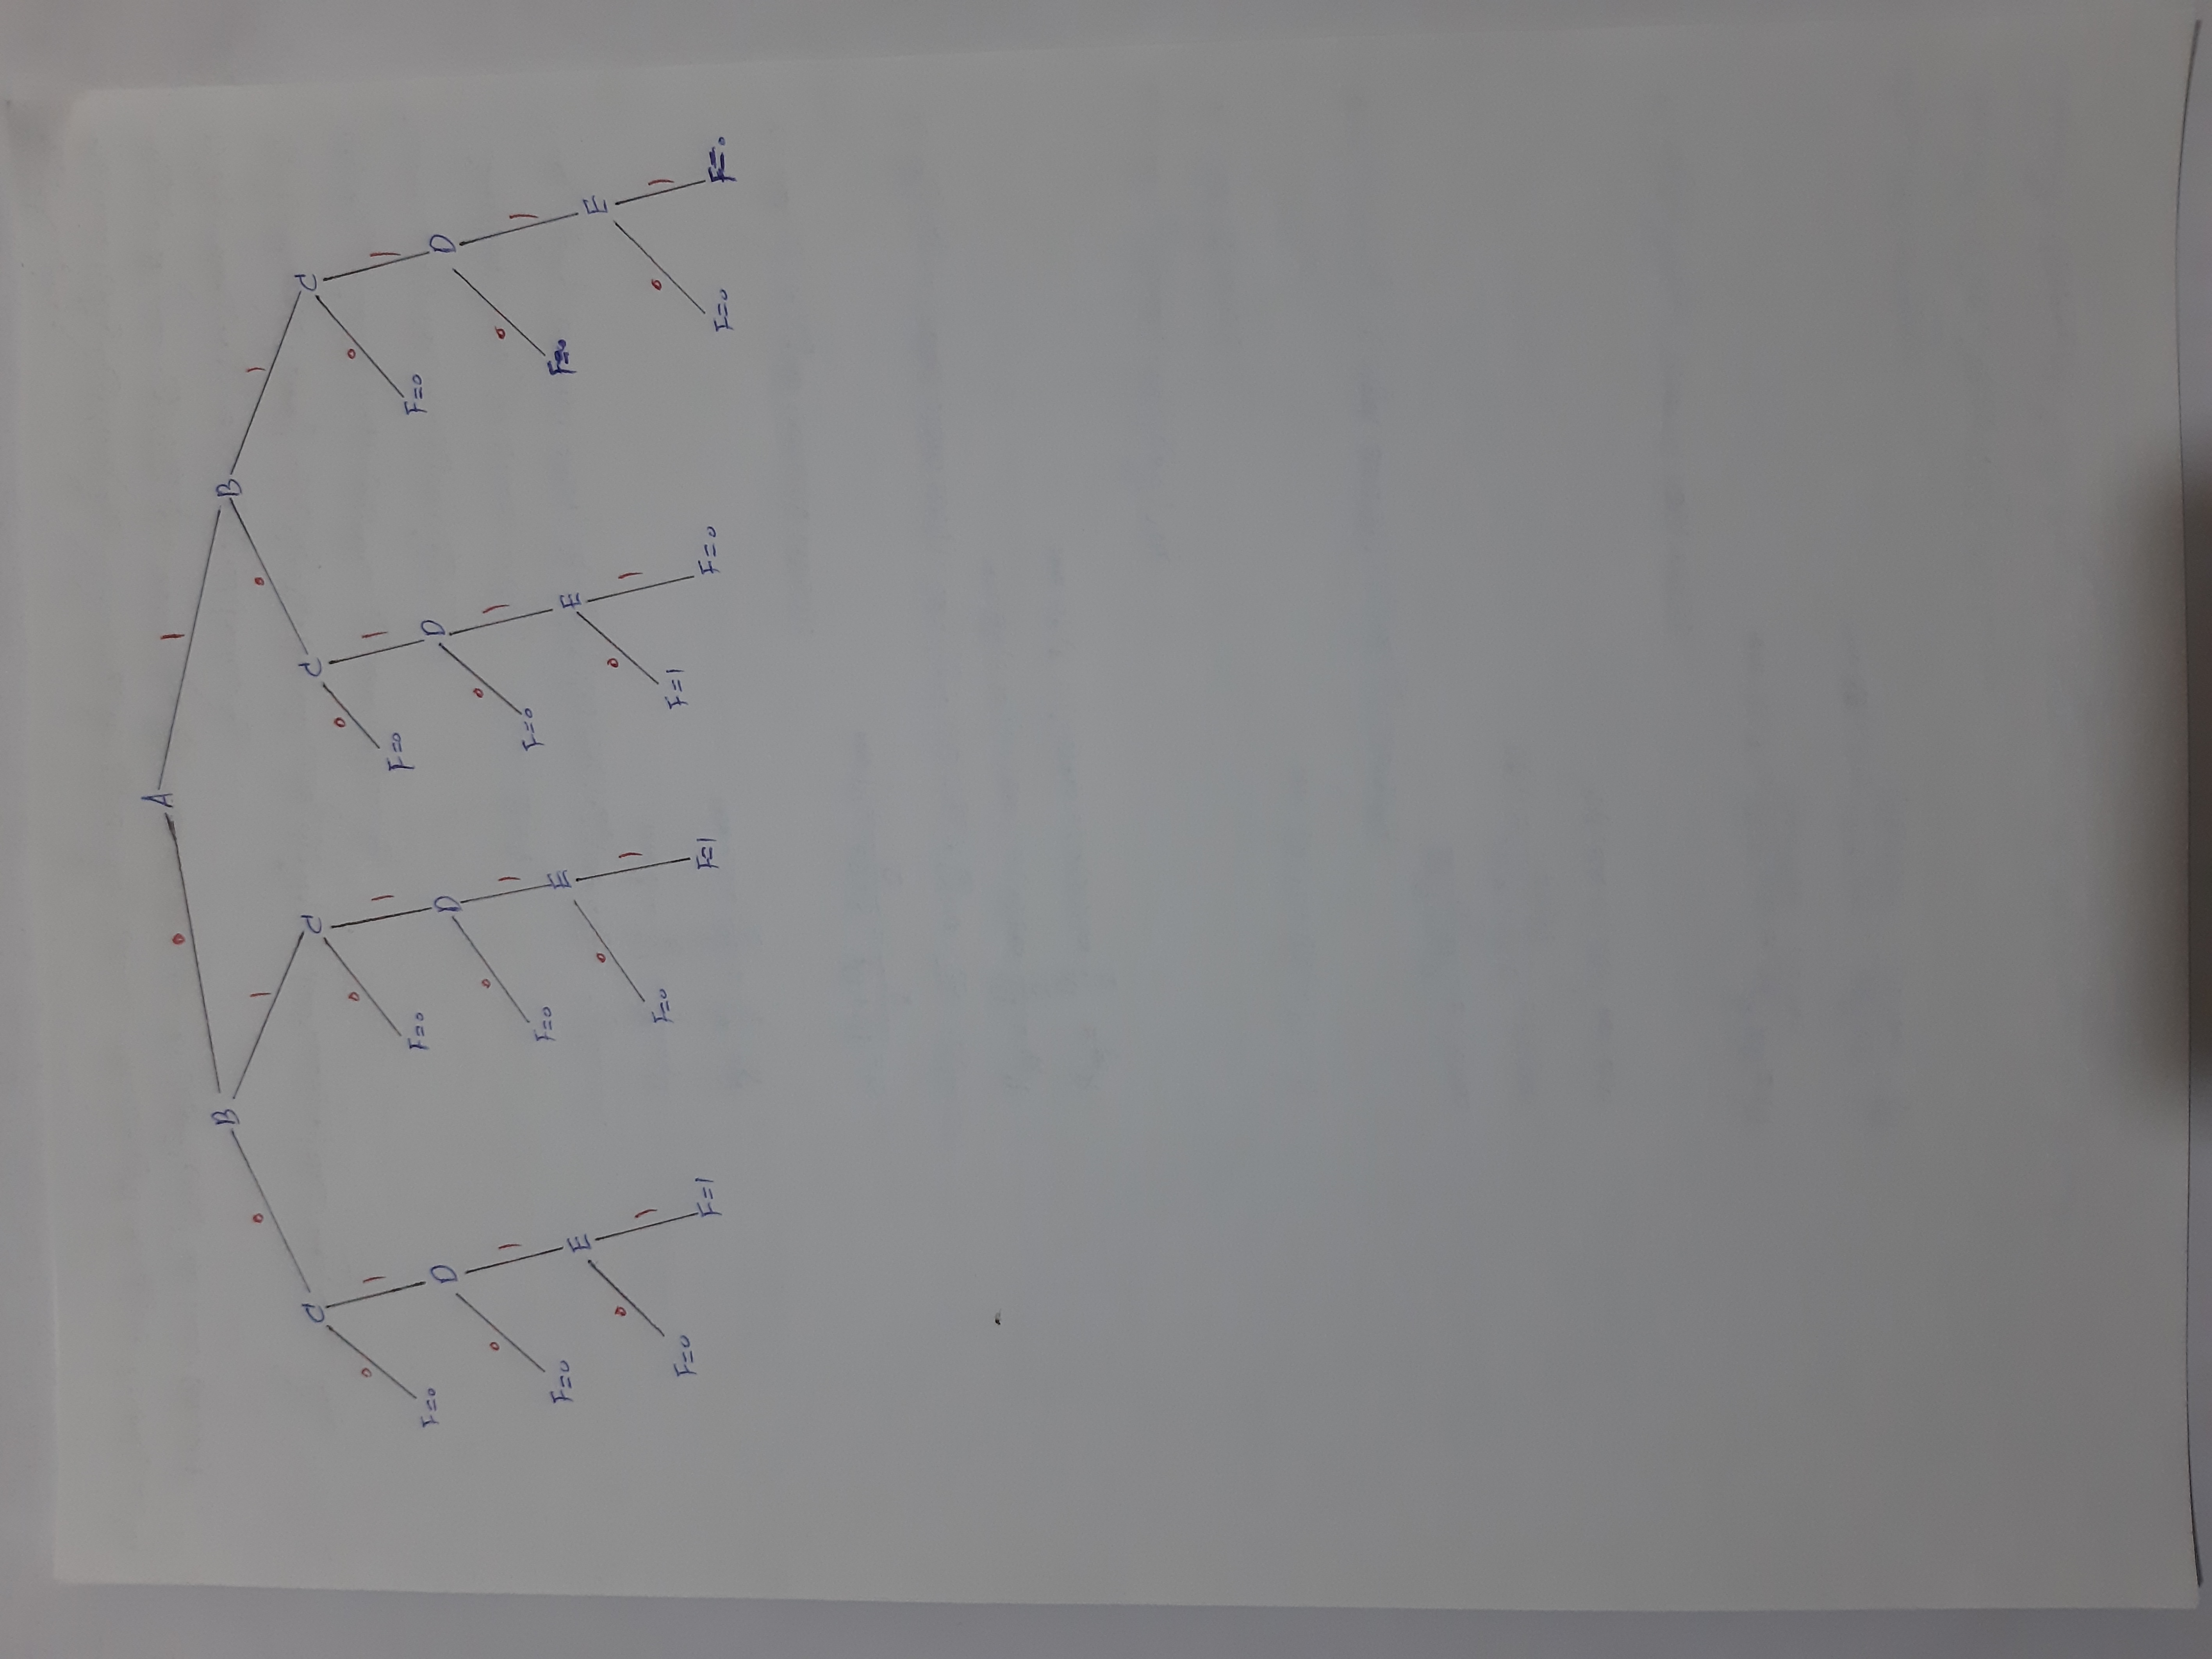 A
0 1
B B
0 1 0 1
C C C C
0 1 0 1 0 1 0 1
F=0 D F=0 D F=0 D F=0 D
0 1 0 1 0 1 0 1
F=0 E F=0 E F=0 E F=0 E
0 1 0 1 0 1 0 1
F=0 F=1 F=0 F=1 F=1 F=0 F=0 F=0